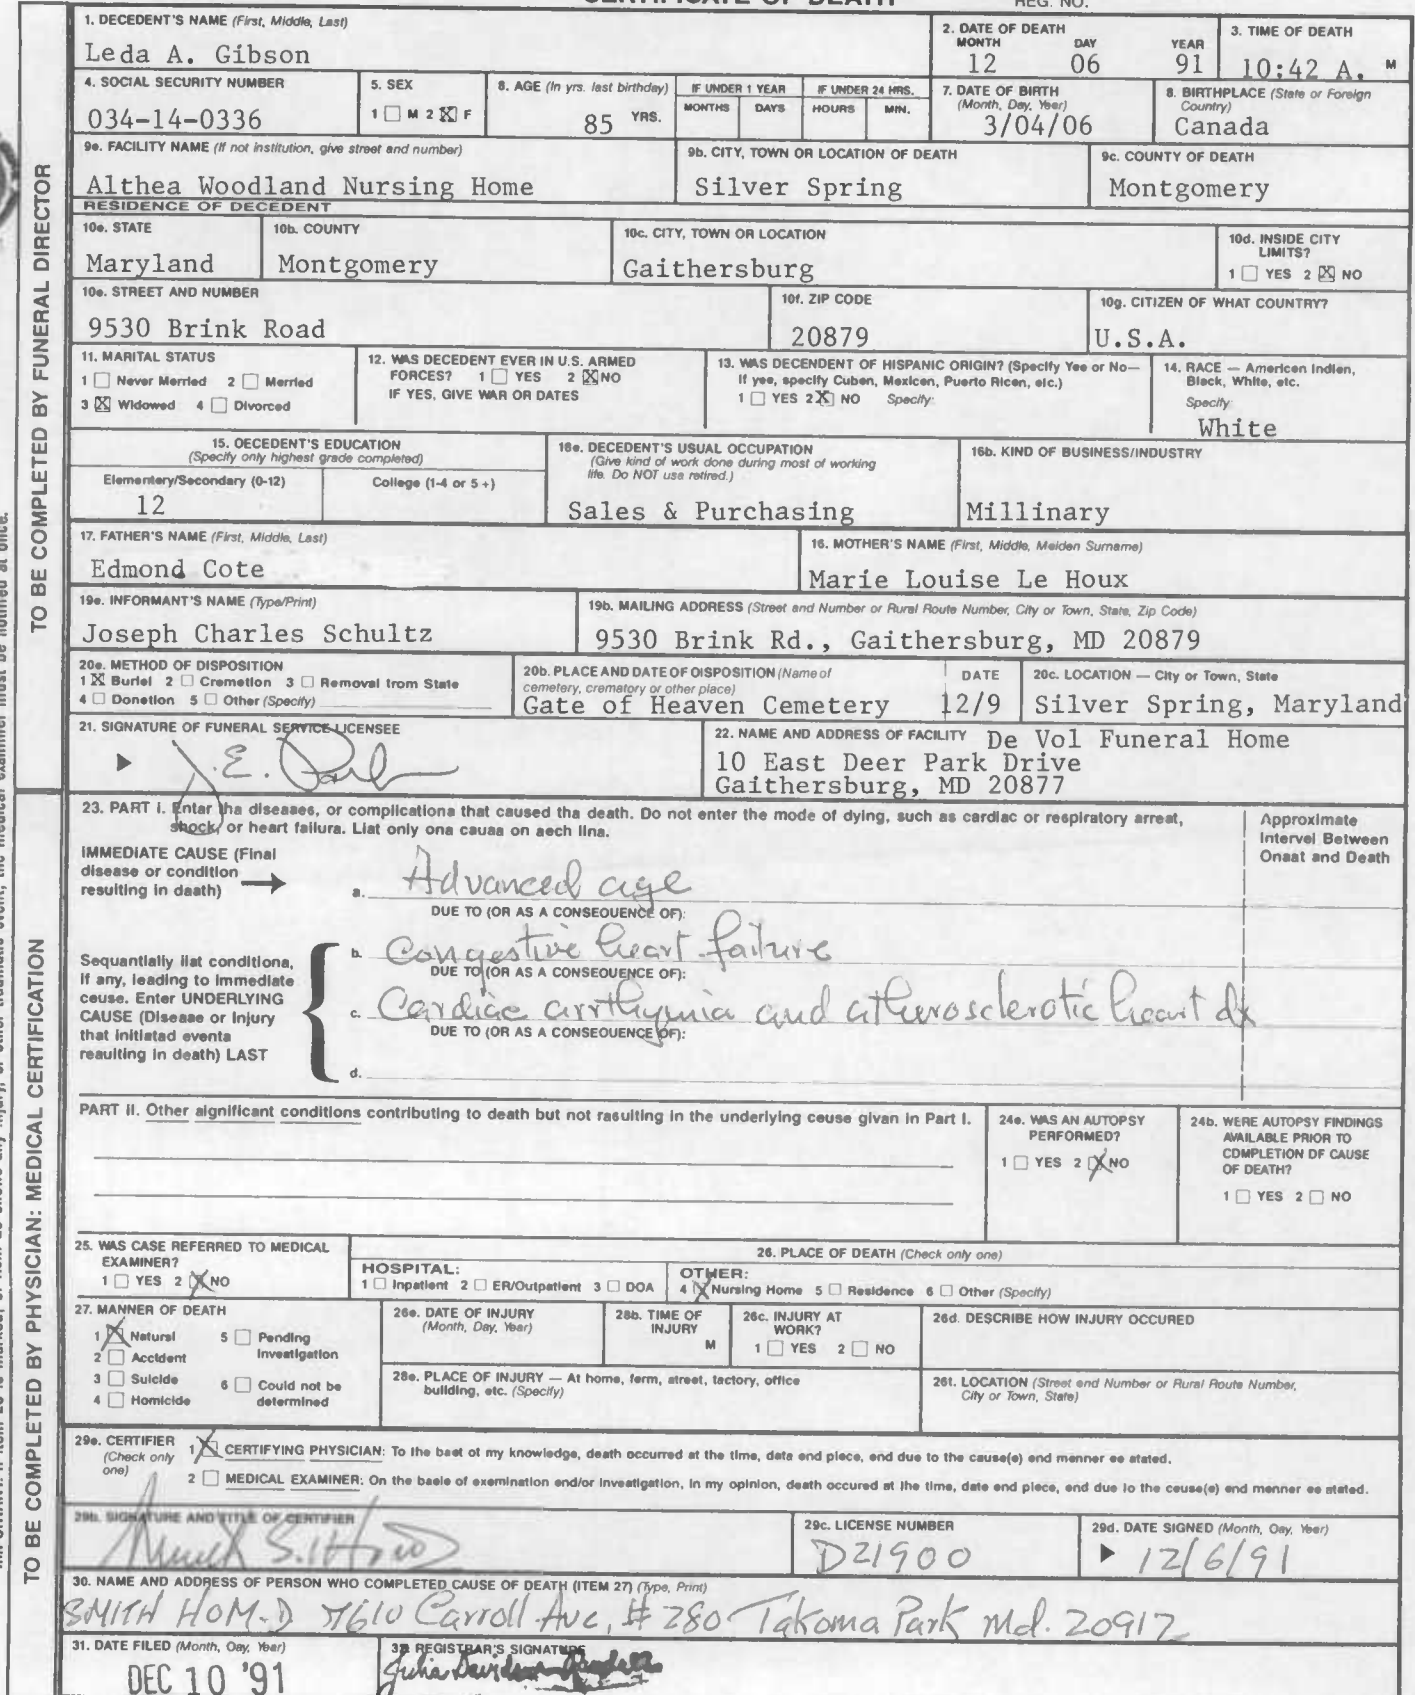 CERTIFICATE OF DEATH REG. NO.
TO BE COMPLETED BY FUNERAL DIRECTOR
1. DECEDENT'S NAME (First, Middle, Last)
Leda A. Gibson
2. DATE OF DEATH
MONTH DAY YEAR
12 06 91
3. TIME OF DEATH
10:42 A. M
4. SOCIAL SECURITY NUMBER
034-14-0336
5. SEX
1 ☐ M 2 ☒ F
8. AGE (In yrs. last birthday)
85 YRS.
IF UNDER 1 YEAR
MONTHS DAYS
IF UNDER 24 HRS.
HOURS MIN.
7. DATE OF BIRTH
(Month, Day, Year)
3/04/06
8. BIRTHPLACE (State or Foreign
Country)
Canada
9e. FACILITY NAME (If not institution, give street and number)
Althea Woodland Nursing Home
9b. CITY, TOWN OR LOCATION OF DEATH
Silver Spring
9c. COUNTY OF DEATH
Montgomery
RESIDENCE OF DECEDENT
10e. STATE
Maryland
10b. COUNTY
Montgomery
10c. CITY, TOWN OR LOCATION
Gaithersburg
10d. INSIDE CITY
LIMITS?
1 ☐ YES 2 ☒ NO
10e. STREET AND NUMBER
9530 Brink Road
10f. ZIP CODE
20879
10g. CITIZEN OF WHAT COUNTRY?
U.S.A.
11. MARITAL STATUS
1 ☐ Never Merried 2 ☐ Merried
3 ☒ Widowed 4 ☐ Divorced
12. WAS DECEDENT EVER IN U.S. ARMED
FORCES? 1 ☐ YES 2 ☒ NO
IF YES, GIVE WAR OR DATES
13. WAS DECENDENT OF HISPANIC ORIGIN? (Specify Yee or No—
If yee, specify Cuben, Mexicen, Puerto Ricen, elc.)
1 ☐ YES 2 ☒ NO Specify:
14. RACE — Americen Indien,
Bleck, White, etc.
Specify
White
15. OECEDENT'S EDUCATION
(Specify only highest grade completed)
Elementery/Secondary (0-12)
12
College (1-4 or 5 +)
18e. DECEDENT'S USUAL OCCUPATION
(Give kind of work done during most of working
life. Do NOT use retired.)
Sales & Purchasing
16b. KIND OF BUSINESS/INDUSTRY
Millinary
17. FATHER'S NAME (First, Middle, Last)
Edmond Cote
16. MOTHER'S NAME (First, Middle, Meiden Surname)
Marie Louise Le Houx
19e. INFORMANT'S NAME (Type/Print)
Joseph Charles Schultz
19b. MAILING ADDRESS (Street and Number or Rural Route Number, City or Town, State, Zip Code)
9530 Brink Rd., Gaithersburg, MD 20879
20e. METHOD OF DISPOSITION
1 ☒ Buriel 2 ☐ Cremetion 3 ☐ Removal from State
4 ☐ Donetion 5 ☐ Other (Specify)
20b. PLACE AND DATE OF OISPOSITION (Name of
cemetery, crematory or other place)
Gate of Heaven Cemetery
DATE
12/9
20c. LOCATION — City or Town, State
Silver Spring, Maryland
21. SIGNATURE OF FUNERAL SERVICE LICENSEE
22. NAME AND ADDRESS OF FACILITY De Vol Funeral Home
10 East Deer Park Drive
Gaithersburg, MD 20877
TO BE COMPLETED BY PHYSICIAN: MEDICAL CERTIFICATION
23. PART I. Enter tha diseases, or complications that caused tha death. Do not enter the mode of dying, such as cardiac or respiratory arreat,
shock, or heart failura. Liat only ona cauaa on aech lina.
Approximate
Intervel Between
Onaat and Death
IMMEDIATE CAUSE (Final
disease or condition
resulting in daath)
a. Advanced age
DUE TO (OR AS A CONSEOUENCE OF):
Sequantially liat conditiona,
if any, leading to immediate
ceuse. Enter UNDERLYING
CAUSE (Diseaae or Injury
that initiatad eventa
reaulting in death) LAST
b. Congestive heart failure
DUE TO (OR AS A CONSEOUENCE OF):
c. Cardiac arrthymia and atherosclerotic heart dx
DUE TO (OR AS A CONSEOUENCE OF):
d.
PART II. Other aignificant conditions contributing to death but not rasulting in the underlying ceuse givan in Part I.
24e. WAS AN AUTOPSY
PERFORMED?
1 ☐ YES 2 ☒ NO
24b. WERE AUTOPSY FINDINGS
AVAILABLE PRIOR TO
COMPLETION DF CAUSE
OF DEATH?
1 ☐ YES 2 ☐ NO
25. WAS CASE REFERRED TO MEDICAL
EXAMINER?
1 ☐ YES 2 ☒ NO
26. PLACE OF DEATH (Check only one)
HOSPITAL:
1 ☐ Inpatient 2 ☐ ER/Outpatlent 3 ☐ DOA
OTHER:
4 ☒ Nursing Home 5 ☐ Residence 6 ☐ Other (Specify)
27. MANNER OF DEATH
1 ☒ Naturel 5 ☐ Pending
Investigation
2 ☐ Accident
3 ☐ Suicide 6 ☐ Could not be
determined
4 ☐ Homicide
26e. DATE OF INJURY
(Month, Day, Year)
28b. TIME OF
INJURY
M
26c. INJURY AT
WORK?
1 ☐ YES 2 ☐ NO
26d. DESCRIBE HOW INJURY OCCURED
28e. PLACE OF INJURY — At home, ferm, street, factory, office
building, etc. (Specify)
26f. LOCATION (Street end Number or Rural Route Number,
City or Town, State)
29e. CERTIFIER
(Check only
one)
1 ☒ CERTIFYING PHYSICIAN: To the beet of my knowledge, death occurred at the time, date end plece, end due to the cause(e) end menner ee atated.
2 ☐ MEDICAL EXAMINER: On the basie of exemination end/or Inveatigation, in my opinion, death occured at the time, date end plece, end due to the ceuse(e) end menner ee stated.
29b. SIGNATURE AND TITLE OF CERTIFIER
29c. LICENSE NUMBER
D21900
29d. DATE SIGNED (Month, Oay, Year)
12/6/91
30. NAME AND ADDRESS OF PERSON WHO COMPLETED CAUSE OF DEATH (ITEM 27) (Type, Print)
SMITH HO M.D 7610 Carroll Ave, # 280 Takoma Park Md. 20912
31. DATE FILED (Month, Oay, Year)
DEC 10 '91
32. REGISTRAR'S SIGNATURE